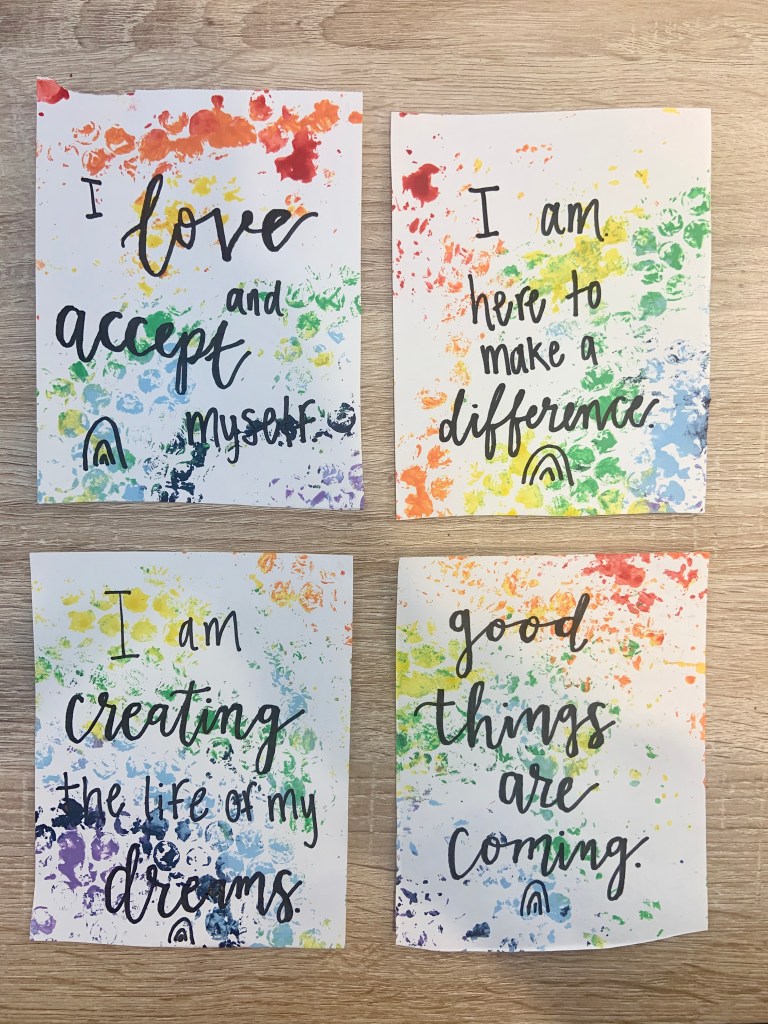 I love
and
accept
myself.
I am
here to
make a
difference.
I am
creating
the life of my
dreams.
good
things
are
coming.